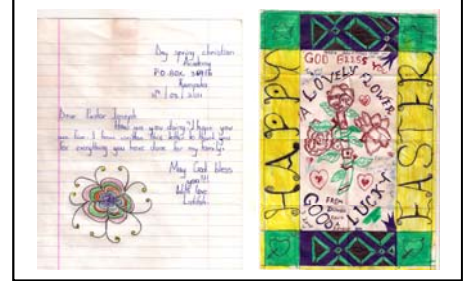 Day spring christian
Academy
P.O. BOX
Kampala
Dear Pastor Joseph
How are you doing? I hope you
are fine. I have written this letter to thank you
for everything you have done for my family.
May God bless
you!!!
With love
HAPPY
GOD BLESS YOU
A LOVELY FLOWER
FROM
GOOD LUCKY
EASTER